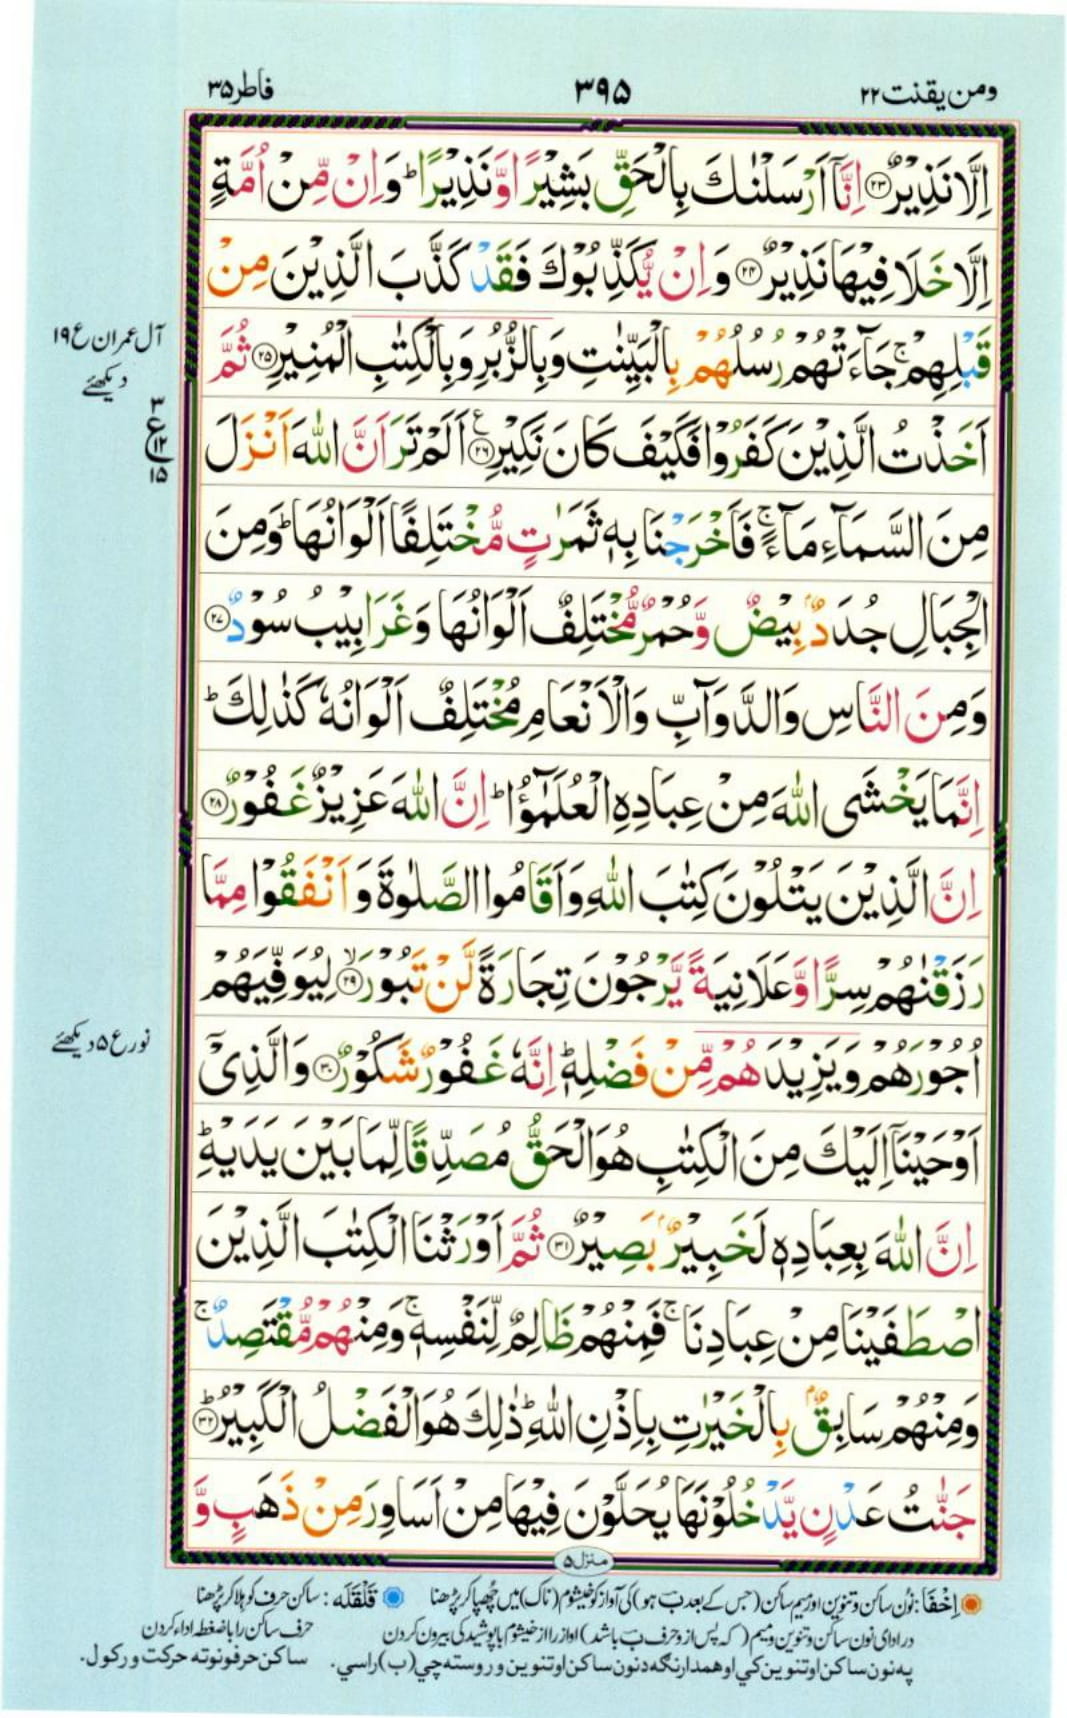 ومن یقنت ۲۲
۳۹۵
فاطر ۳۵
اِلَّا نَذِیْرٌ ﴿۲۳﴾ اِنَّاۤ اَرْسَلْنٰكَ بِالْحَقِّ بَشِیْرًا وَّنَذِیْرًا ؕ وَاِنْ مِّنْ اُمَّةٍ
اِلَّا خَلَا فِیْهَا نَذِیْرٌ ﴿۲۴﴾ وَاِنْ یُّكَذِّبُوْكَ فَقَدْ كَذَّبَ الَّذِیْنَ مِنْ
قَبْلِهِمْ ۚ جَآءَتْهُمْ رُسُلُهُمْ بِالْبَیِّنٰتِ وَبِالزُّبُرِ وَبِالْكِتٰبِ الْمُنِیْرِ ﴿۲۵﴾ ثُمَّ
اَخَذْتُ الَّذِیْنَ كَفَرُوْا فَكَیْفَ كَانَ نَكِیْرِ ﴿۲۶﴾ ع اَلَمْ تَرَ اَنَّ اللّٰهَ اَنْزَلَ
مِنَ السَّمَآءِ مَآءً ۚ فَاَخْرَجْنَا بِهٖ ثَمَرٰتٍ مُّخْتَلِفًا اَلْوَانُهَا ؕ وَمِنَ
الْجِبَالِ جُدَدٌۢ بِیْضٌ وَّحُمْرٌ مُّخْتَلِفٌ اَلْوَانُهَا وَغَرَابِیْبُ سُوْدٌ ﴿۲۷﴾
وَمِنَ النَّاسِ وَالدَّوَآبِّ وَالْاَنْعَامِ مُخْتَلِفٌ اَلْوَانُهٗ كَذٰلِكَ ؕ
اِنَّمَا یَخْشَی اللّٰهَ مِنْ عِبَادِهِ الْعُلَمٰٓؤُا ؕ اِنَّ اللّٰهَ عَزِیْزٌ غَفُوْرٌ ﴿۲۸﴾
اِنَّ الَّذِیْنَ یَتْلُوْنَ كِتٰبَ اللّٰهِ وَاَقَامُوا الصَّلٰوةَ وَاَنْفَقُوْا مِمَّا
رَزَقْنٰهُمْ سِرًّا وَّعَلَانِیَةً یَّرْجُوْنَ تِجَارَةً لَّنْ تَبُوْرَ ﴿۲۹﴾ۙ لِیُوَفِّیَهُمْ
اُجُوْرَهُمْ وَیَزِیْدَهُمْ مِّنْ فَضْلِهٖ ؕ اِنَّهٗ غَفُوْرٌ شَكُوْرٌ ﴿۳۰﴾ وَالَّذِیْۤ
اَوْحَیْنَاۤ اِلَیْكَ مِنَ الْكِتٰبِ هُوَ الْحَقُّ مُصَدِّقًا لِّمَا بَیْنَ یَدَیْهِ ؕ
اِنَّ اللّٰهَ بِعِبَادِهٖ لَخَبِیْرٌۢ بَصِیْرٌ ﴿۳۱﴾ ثُمَّ اَوْرَثْنَا الْكِتٰبَ الَّذِیْنَ
اصْطَفَیْنَا مِنْ عِبَادِنَا ۚ فَمِنْهُمْ ظَالِمٌ لِّنَفْسِهٖ ۚ وَمِنْهُمْ مُّقْتَصِدٌ ۚ
وَمِنْهُمْ سَابِقٌۢ بِالْخَیْرٰتِ بِاِذْنِ اللّٰهِ ؕ ذٰلِكَ هُوَ الْفَضْلُ الْكَبِیْرُ ﴿۳۲﴾ؕ
جَنّٰتُ عَدْنٍ یَّدْخُلُوْنَهَا یُحَلَّوْنَ فِیْهَا مِنْ اَسَاوِرَ مِنْ ذَهَبٍ وَّ
آل عمران ع ۱۹
دیکھئے
۳
ع ۱۲
۱۵
نور ع ۵ دیکھئے
منزل ۵
اِخْفَا: نُون ساکن و تنوین اور میم ساکن (جس کے بعد ب ہو) کی آواز کو خیشوم (ناک) میں چُھپا کر پڑھنا
قَلْقَلَه: ساکن حرف کو ہلا کر پڑھنا
در ادای نون ساکن و تنوین و میم (که پس از و حرف ب باشد) آواز را از خیشوم با پوشیدگی بیرون کردن
حرف ساکن را با ضغط ادا کردن
په نون ساکن او تنوین کي او همدارنګه د نون ساکن او تنوین و روسته چي (ب) راسي.
ساکن حرفو نوته حرکت ورکول.